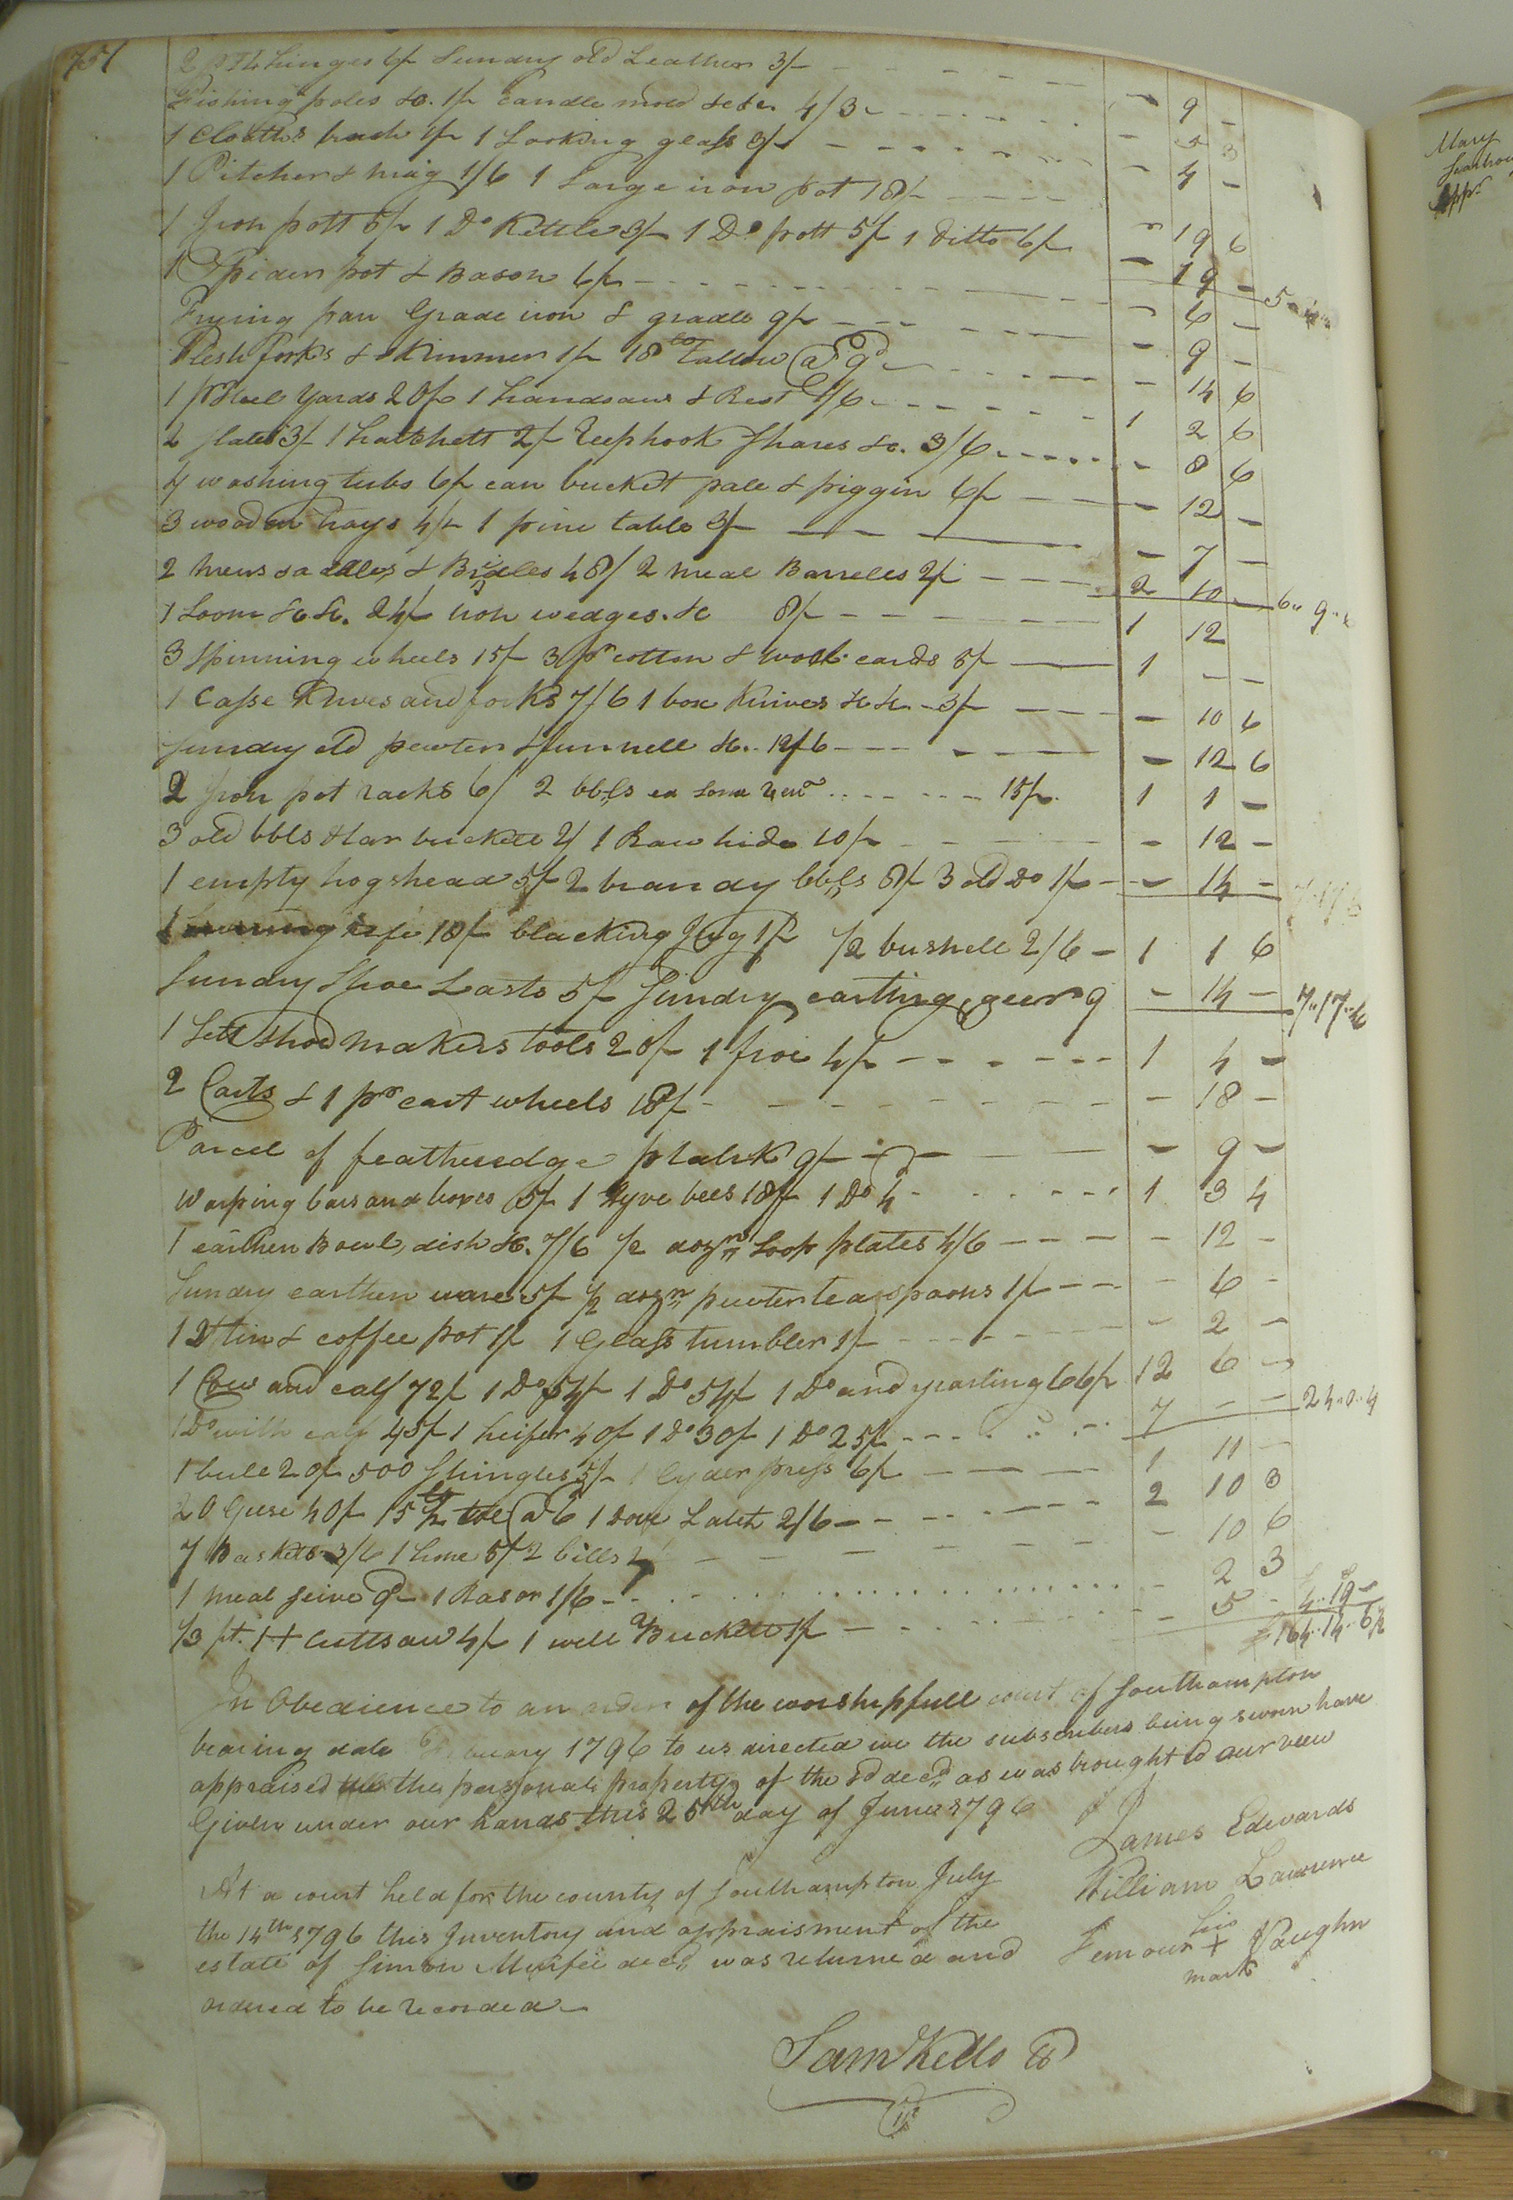 751
2 pr H hinges 6/- Sundry old Leather 3/- - 9 -
Fishing poles &c. 1/- candle mold &c &c. 4/3 - 5 3
1 cloaths brush 1/- 1 Looking glass 3/- - 4 -
1 Pitcher & mug 1/6 1 Large iron pot 18/- - 19 6
1 Iron pott 5/- 1 Do Kettle 3/- 1 Do pott 5/- 1 ditto 6/- - 19 -
1 Spider pot & Bason 6/- - 6 -
Frying pan Grade iron & gradle 9/- - 9 -
Flesh forks & skimmer 1/- 18 lb Tallow @ 9d - 14 6
1 pr Steel yards 20/- 1 handsaw & Rest 2/6 1 2 6
2 slates 3/- 1 hatchett 2/- Reephook Shares &c. 3/6 - 8 6
4 washing tubs 6/- can bucket pale & piggin 6/- - 12 -
3 wooden trays 4/- 1 pine table 3/- - 7 -
2 mens saddles & Bridles 48/ 2 meal Barrells 2/- 2 10 -
1 Loom &c &c. 24/- iron wedges. &c 8/- 1 12
3 Spinning wheels 15/- 3 pr cotton & wool cards 5/- 1 - -
1 Casse Knives and forks 7/6 1 box Knives &c &c - 3/- - 10 6
Sundry old pewter & funnell &c. 12/6 - 12 6
2 Iron pot racks 6/ 2 bbls 15/- 1 1 -
3 old bbls & tar buckett 2/ 1 Raw hide 10/- - 12 -
1 empty hogshead 5/- 2 brandy bbls 8/- 3 old Do 1/- - 14 -
1 18/- blacking Jug 1/- 1/2 bushell 2/6 - 1 1 6
Sundry Shoe Lasts 5/- Sundry carting geer 9 - 14 - 7..17..6
1 Sett Shoe makers tools 20/- 1 froe 4/- 1 4 -
2 Carts & 1 pr cart wheels 18/- - 18 -
Parcel of featheredge plank 9/- - 9 -
Warping bars and boxes 5/- 1 Hyve bees 18/- 1 Do 4 1 3 4
1 earthen Bowl, dish &c. 7/6 1/2 dozn Soop plates 4/6 - 12 -
Sundry earthen ware 5/- 1/2 dozn pewter tea spoons 1/- - 6 -
1 tin & coffee pot 1/- 1 Glass tumbler 1/- - 2 -
1 Cow and calf 72/- 1 Do 54/- 1 Do 54/- 1 Do and yearling 66/- 12 6 -
1 Do with calf 45/- 1 heifer 40/- 1 Do 30/- 1 Do 25/- 7 - - 24..0..4
1 bull 20/- 500 Shingles 5/- 1 Cyder press 6/- 1 11 -
20 Geese 40/- 15 1/2 lb @ 6 1 Door Latch 2/6 - 2 10 3
7 Baskets 3/6 1 hone 5/ 2 bills 2/ - 10 6
1 meal seive 9d 1 Rasor 1/6 - 2 3
1/3 pt. 1 + Cutt saw 4/- 1 well Buckett 1/- - 5 - 4..19 -
£164..14..6 1/2
In Obedience to an order of the worshipfull court of Southampton
bearing date 1796 to us directed we the subscribers being sworn have
appraised the personal property of the sd decd as was brought to our view
Given under our hands this 25th day of June 1796
James Edwards
William Lawrence
his
+ Vaughn
mark
At a court held for the county of Southampton July
the 14th 1796 this Inventory and appraisment of the
estate of Simon Murfee decd was returned and
ordered to be recorded
Sam Kello CC
Mary